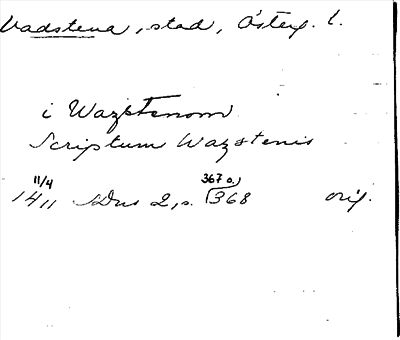 Vadstena, stad, Österg. l.
i Wazstenom
Scriptum Wazstenis
11/4 367 o.
1411 SDns 2, s. 368 orig.